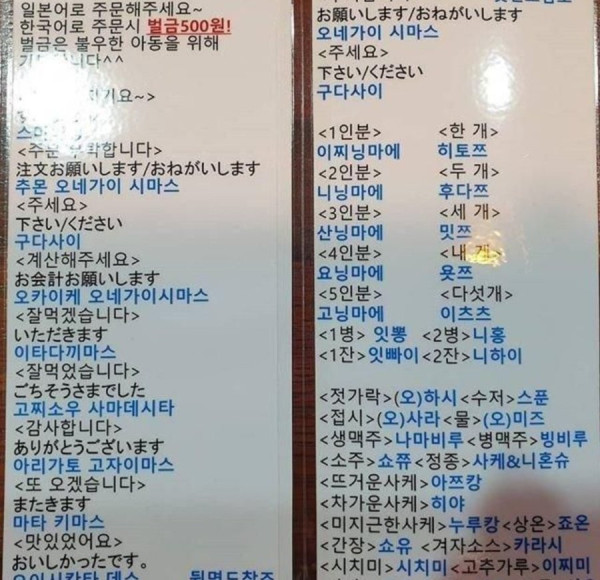 일본어로 주문해주세요~
한국어로 주문시 벌금500원!
벌금은 불우한 아동을 위해
<주문 부탁합니다>
注文お願いします/おねがいします
추몬 오네가이 시마스
<주세요>
下さい/ください
구다사이
<계산해주세요>
お会計お願いします
오카이케 오네가이시마스
<잘먹겠습니다>
いただきます
이타다끼마스
<잘먹었습니다>
ごちそうさまでした
고찌소우 사마데시타
<감사합니다>
ありがとうございます
아리가토 고자이마스
<또 오겠습니다>
またきます
마타 키마스
<맛있었어요>
おいしかったです。
오이시캇타 데스
뒷면도참조
お願いします/おねがいします
오네가이 시마스
<주세요>
下さい/ください
구다사이
<1인분> <한 개>
이찌닝마에 히토쯔
<2인분> <두 개>
니닝마에 후다쯔
<3인분> <세 개>
산닝마에 밋쯔
<4인분> <내 개>
요닝마에 욧쯔
<5인분> <다섯개>
고닝마에 이츠츠
<1병> 잇뽕 <2병>니홍
<1잔>잇빠이<2잔>니하이
<젓가락>(오)하시<수저>스푼
<접시>(오)사라<물>(오)미즈
<생맥주>나마비루<병맥주>빙비루
<소주>쇼쮸<정종>사케&니혼슈
<뜨거운사케>아쯔캉
<차가운사케>히야
<미지근한사케>누루캉<상온>죠온
<간장>쇼유<겨자소스>카라시
<시치미>시치미<고추가루>이찌미